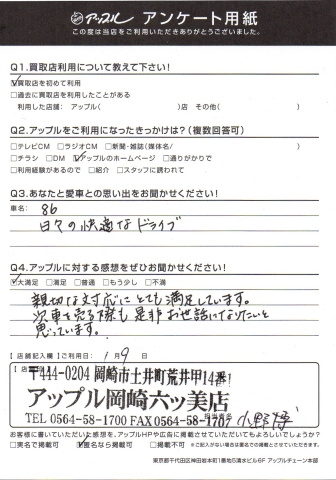 アップル アンケート用紙
この度は当店をご利用いただきありがとうございました。
Q1.買取店利用について教えて下さい!
☑買取店を初めて利用
□過去に買取店を利用したことがある
利用した店舗: アップル( )店 その他( )
Q2.アップルをご利用になったきっかけは?(複数回答可)
□テレビCM □ラジオCM □新聞・雑誌(媒体名/ )
□チラシ □DM ☑アップルのホームページ □通りがかりで
□利用経験があるので □紹介 □スタッフに誘われて
Q3.あなたと愛車との思い出をお聞かせください!
車名: 86
日々の快適なドライブ
Q4.アップルに対する感想をぜひお聞かせください!
☑大満足 □満足 □普通 □もう少し □不満
親切な対応にとても満足しています。
次車を売る際も是非お世話になりたいと
思っています。
【店舗記入欄】【ご利用日: 1月9日
【店
〒444-0204 岡崎市土井町荒井甲14番1
アップル岡崎六ッ美店
TEL 0564-58-1700 FAX 0564-58-1709 小野 博
お客様に書いていただいた感想を、アップルHPや広告に掲載させていただいてもよろしいでしょうか?
□実名で掲載可 ☑匿名なら掲載可 □掲載不可 ※ご記入がない場合は匿名での掲載とさせていただきます。
東京都千代田区神田岩本町1番地5清水ビル6F アップルチェーン本部